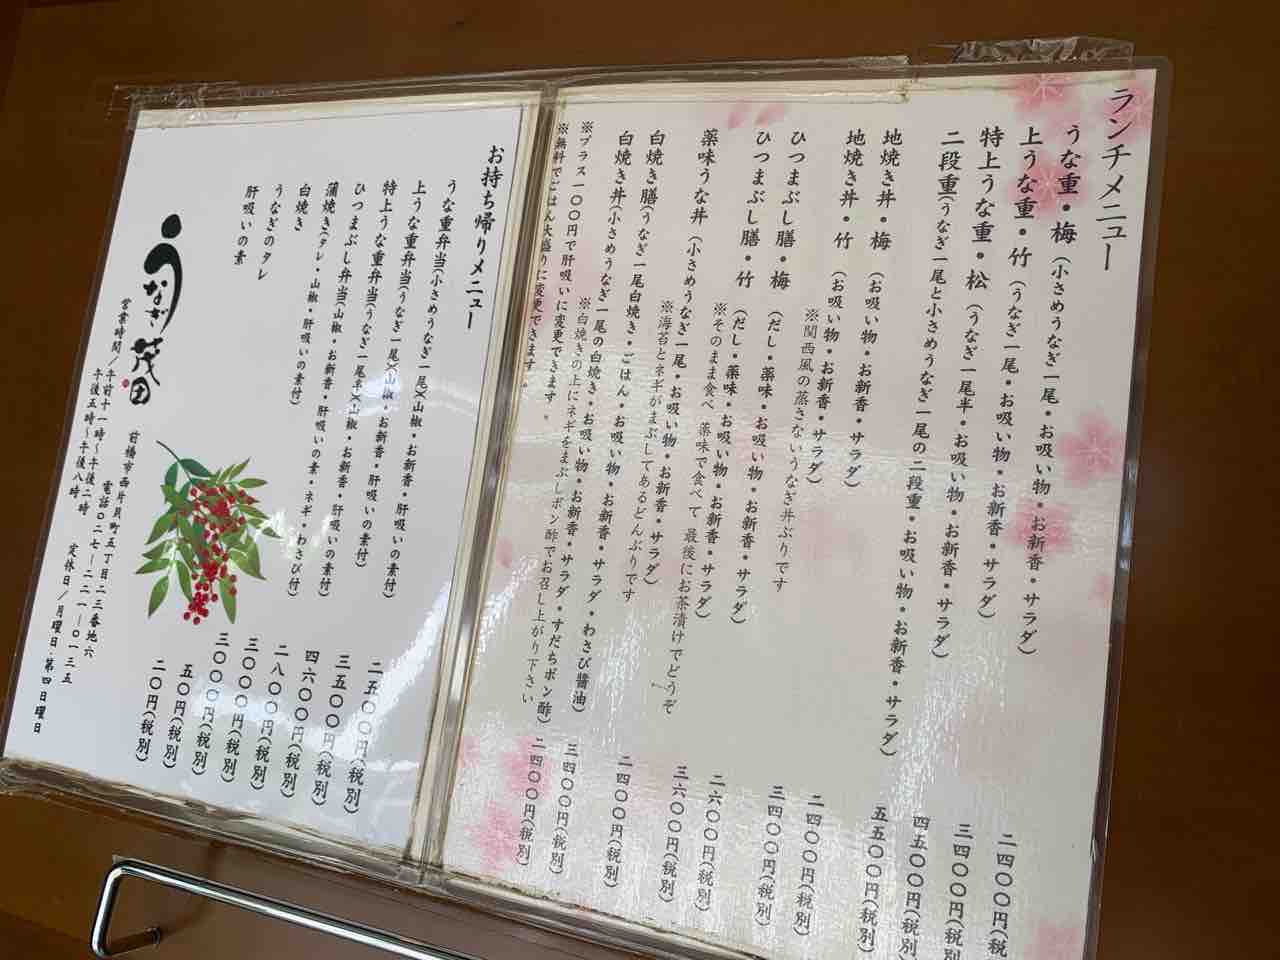 ランチメニュー
うな重・梅（小さめうなぎ一尾・お吸い物・お新香・サラダ）
二四〇〇円（税
上うな重・竹（うなぎ一尾・お吸い物・お新香・サラダ）
三四〇〇円（税
特上うな重・松（うなぎ一尾半・お吸い物・お新香・サラダ）
四五〇〇円（税別）
二段重（うなぎ一尾と小さめうなぎ一尾の二段重・お吸い物・お新香・サラダ）
五五〇〇円（税別）
地焼き丼・梅（お吸い物・お新香・サラダ）
二四〇〇円（税別）
地焼き丼・竹（お吸い物・お新香・サラダ）
三四〇〇円（税別）
※関西風の蒸さないうなぎ丼ぶりです
ひつまぶし膳・梅（だし・薬味・お吸い物・お新香・サラダ）
二六〇〇円（税別）
ひつまぶし膳・竹（だし・薬味・お吸い物・お新香・サラダ）
三六〇〇円（税別）
※そのまま食べ 薬味で食べて 最後にお茶漬けでどうぞ
薬味うな丼（小さめうなぎ一尾・お吸い物・お新香・サラダ）
二四〇〇円（税別）
※海苔とネギがまぶしてあるどんぶりです
白焼き膳（うなぎ一尾白焼き・ごはん・お吸い物・お新香・サラダ・わさび醤油）
三四〇〇円（税別）
白焼き丼（小さめうなぎ一尾の白焼き・お吸い物・お新香・サラダ・すだちポン酢）
二四〇〇円（税別）
※白焼きの上にネギをまぶしポン酢でお召し上がり下さい
※プラス一〇〇円で肝吸いに変更できます。
※無料でごはん大盛りに変更できます。
お持ち帰りメニュー
うな重弁当（小さめうなぎ一尾）（山椒・お新香・肝吸いの素付）
二五〇〇円（税別）
上うな重弁当（うなぎ一尾）（山椒・お新香・肝吸いの素付）
三五〇〇円（税別）
特上うな重弁当（うなぎ一尾半）（山椒・お新香・肝吸いの素付）
四六〇〇円（税別）
ひつまぶし弁当（山椒・お新香・肝吸いの素・ネギ・わさび付）
二八〇〇円（税別）
蒲焼き（タレ・山椒・肝吸いの素付）
三〇〇〇円（税別）
白焼き
三〇〇〇円（税別）
うなぎのタレ
五〇円（税別）
肝吸いの素
二〇円（税別）
うなぎ 茂田
前橋市西片貝町五丁目二三番地六
電話〇二七ー二二一ー〇一三五
営業時間／午前十一時〜午後二時
午後五時〜午後八時
定休日／月曜日・第四日曜日